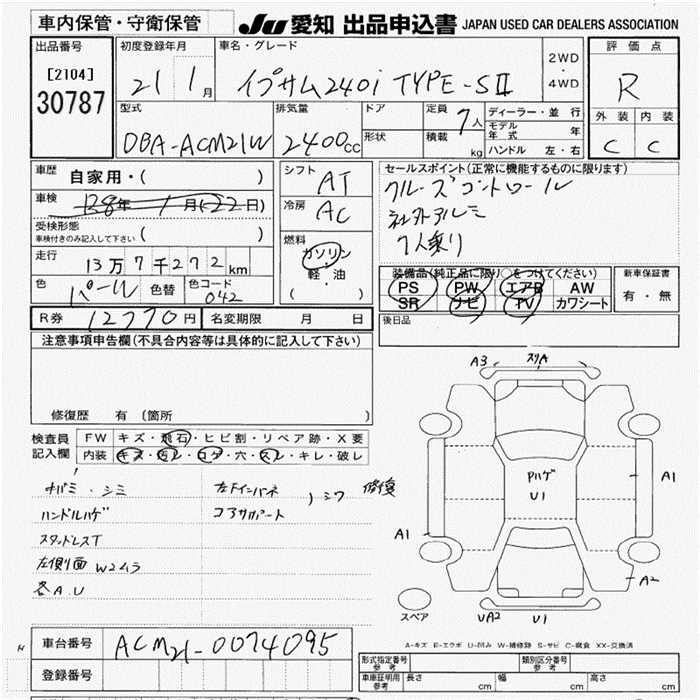 車内保管・守衛保管
JU 愛知 出品申込書 JAPAN USED CAR DEALERS ASSOCIATION
出品番号
[2104]
30787
初度登録年月
21 1月
車名・グレード
イプサム240i TYPE-SⅡ
2WD
・
4WD
評価点
R
外装 内装
C C
型式
DBA-ACM21W
排気量
2400cc
ドア
形状
定員 7人
積載 kg
ディーラー・並行
モデル年式 年
ハンドル 左・右
車歴 自家用・( )
車検 R8年 1月(22日)
受検形態
車検付きのみ記入して下さい ( )
走行 13万7千272km
色 パール 色替 色コード 042
シフト AT
冷房 AC
燃料
ガソリン
軽・油
( )
セールスポイント(正常に機能するものに限ります)
クルーズコントロール
社外アルミ
7人乗り
装備品(純正品に限り○をつけてください)
PS PW エアB AW
SR ナビ TV カワシート
新車保証書
有・無
後日品
R券 12770円 名変期限 月 日
注意事項申告欄(不具合内容等は具体的に記入して下さい)
修復歴 有(箇所
検査員 FW キズ・飛石・ヒビ割・リペア跡・X要
記入欄 内装 キズ・汚レ・コゲ・穴・スレ・キレ・破レ
シミ
左インパネ
コアサポート
シワ 修復
ハンドルハゲ
スタッドレスT
左側面 W2ムラ
各A.U
A3 スリA
Pハゲ
U1
A1
A1
A2
UA2 U1
スペア
A-キズ E-エクボ U-凹み W-補修跡 S-サビ C-腐食 XX-交換済
車台番号 ACM21-0074095
登録番号
型式指定番号 参考
類別区分番号 参考
車庫証明用 参考 長さ cm 幅 cm 高さ cm